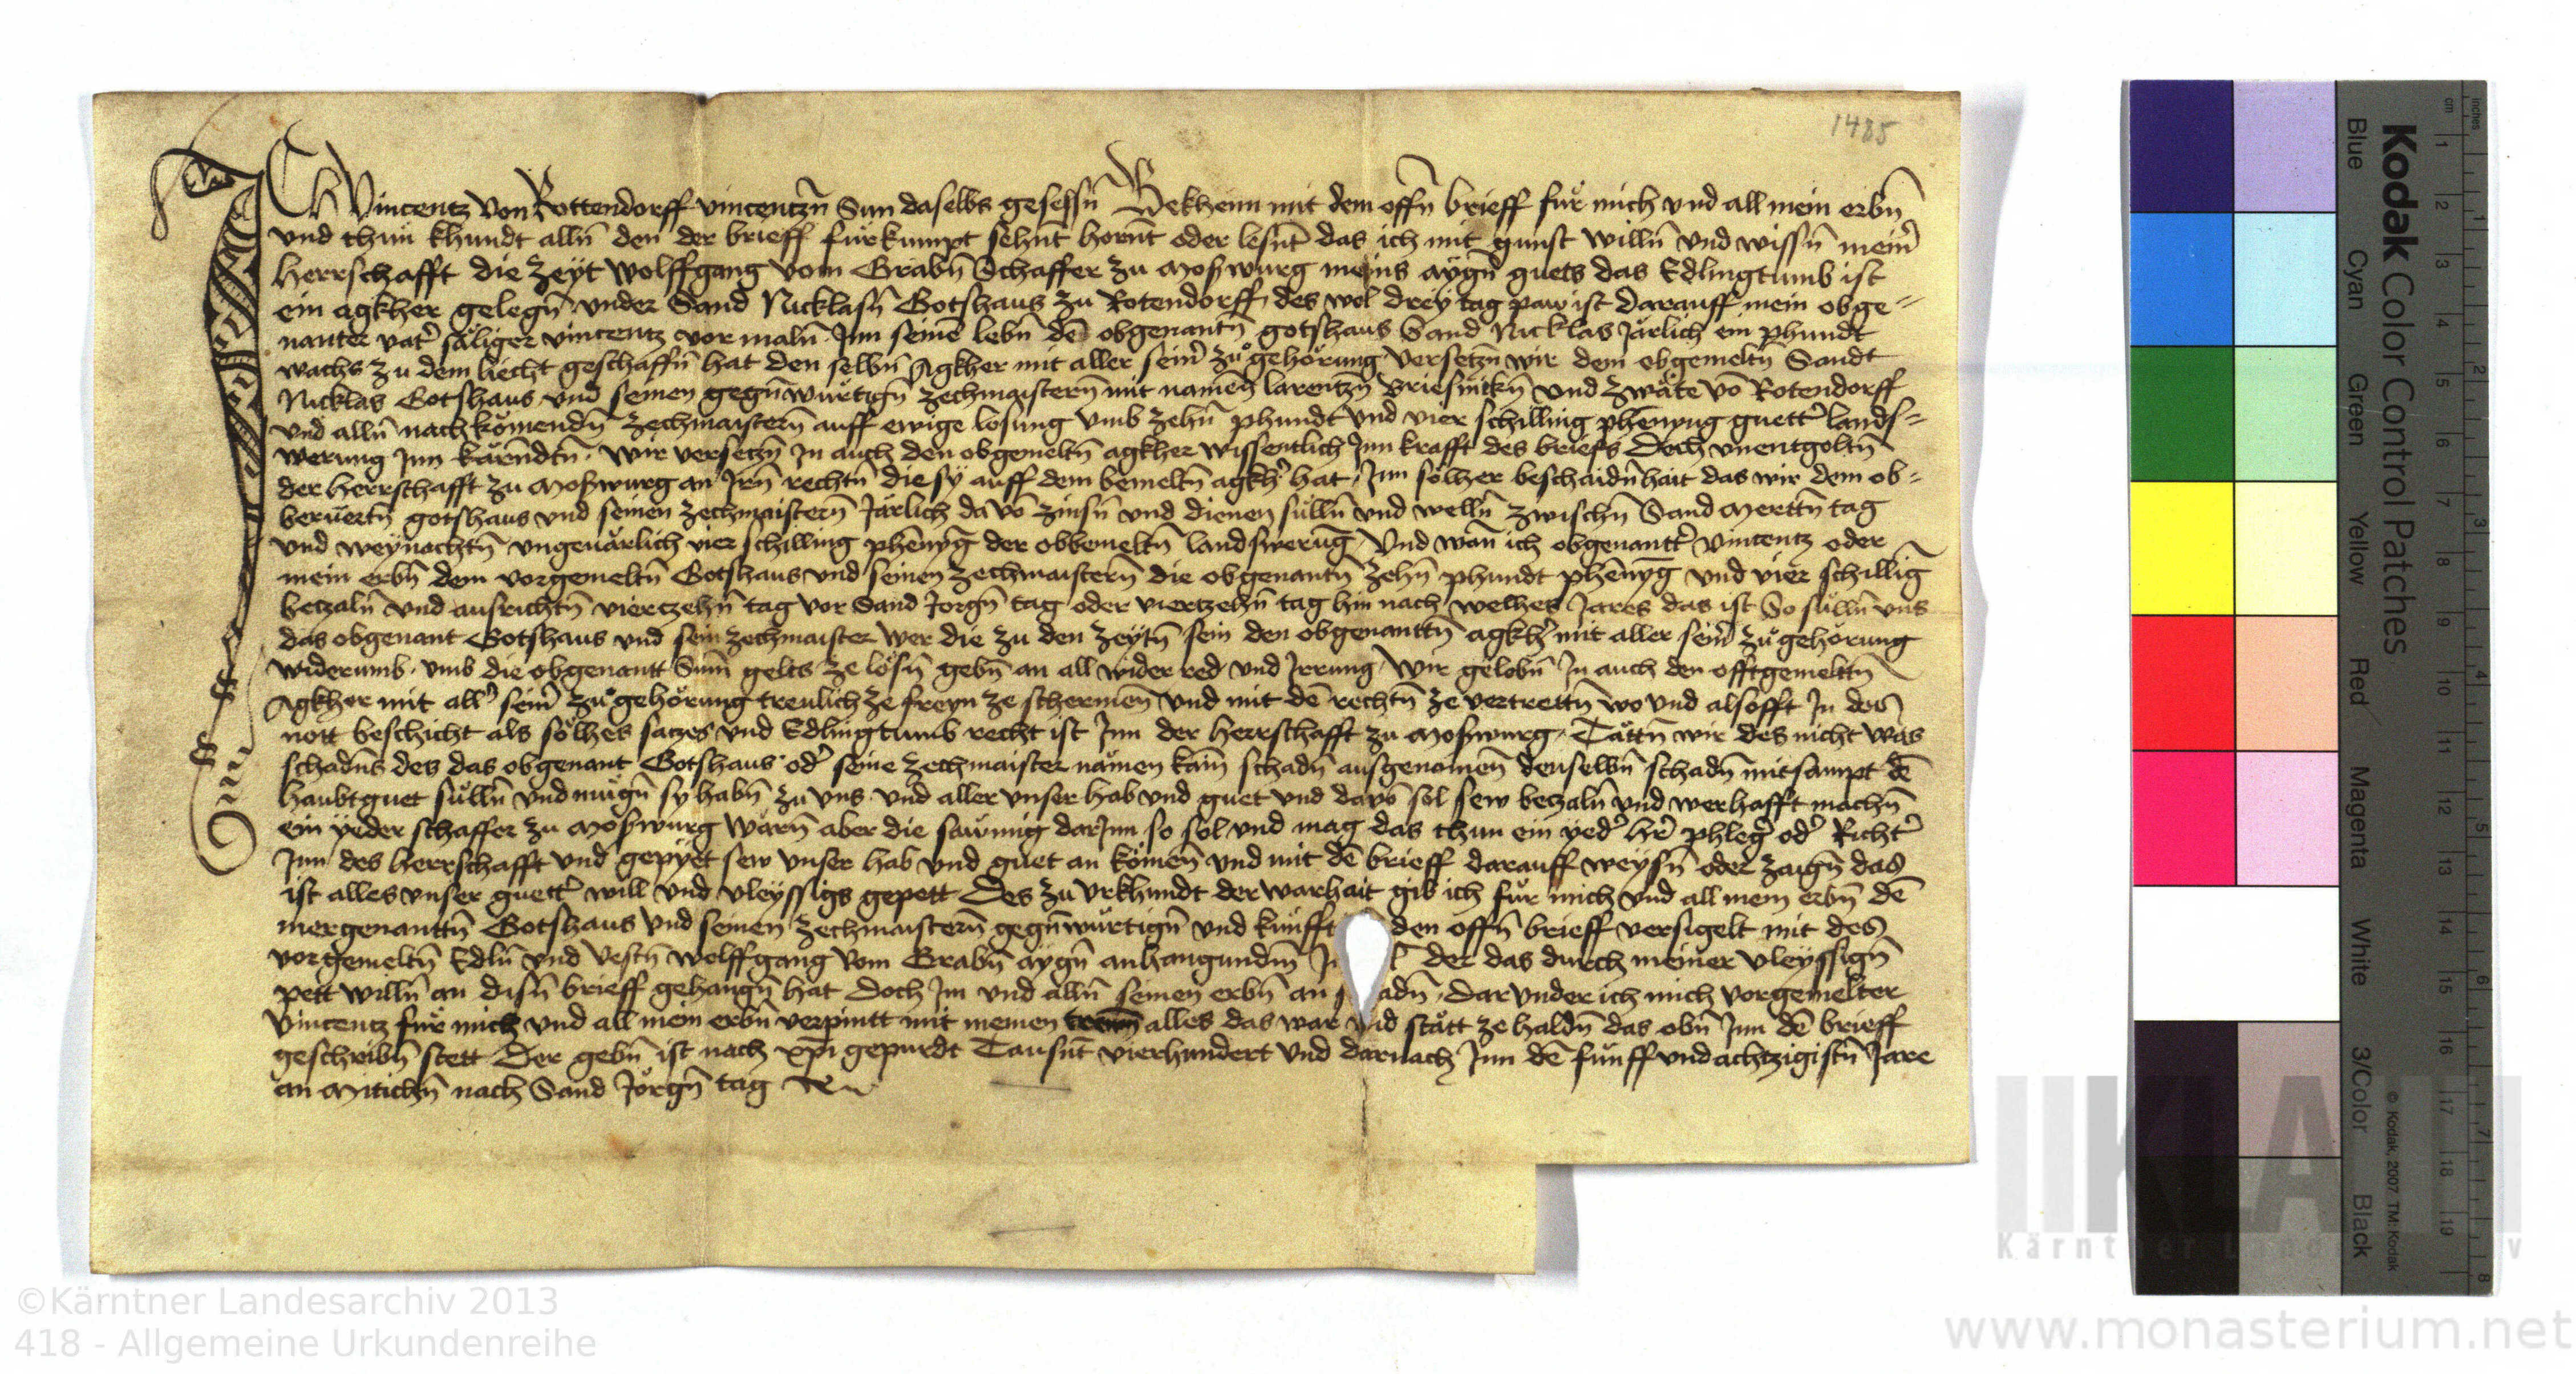 1485
Ich Vincentz von Rottendorff vincentzn̄ Sun daselbs gesessn̄ Bekhenn mit dem offn̄ brieff fuͤr mich vnd all mein erbn̄
vnd thun khundt alln̄ den der brieff fuͤrkumpt sehn̄t hornt oder lesn̄t das ich mit gunst willn̄ vnd wissn̄ mein̄
herrschafft die zeyt wolffgang vom Grabn̄ Schaffer zu moszwurg meins aygn̄ guets das Edlingtumb ist
ein agkher gelegn̄ vnder Sand Nicklasn̄ Gotshaus zu Rotendorff des wol drey tag paw ist darauff mein obge-
nanter vat̄ saͤliger vincentz vormaln̄ Inn seinē lebn̄ dē obgenantn̄ gotshaus Sand Nicklas Jaͤrlich ein phundt
wachs zu dem liecht geschaffn̄ hat den selbn̄ Agkher mit aller sein̄ zuͦgehoͤrung versetzn̄ wir dem obgemeltn̄ Sandt
Nicklas Gotshaus vnd seinen gegn̄wuͤrtign̄ zechmaistern̄ mit namen larentzn̄ vnd vō Rotendorff
vnd alln̄ nachkoͤmendn̄ zechmaistern̄ auff ewige losung vmb zehn̄ phundt vnd vier schilling phēnyng guett̄ lands-
werung Inn kaͤrndtn̄. Wir versetzn̄ In auch den obgemeltn̄ agkher wissentlich Inn krafft des briefs doch vnentgoltn̄
der herrschafft zu moszwurg an Irn̄ rechtn̄ die sy auff dem bemeltn̄ agkh̄ hat, Inn soͤlher beschaidn̄hait das wir dem ob-
beruertn̄ gotshaus vnd seinen zechmaistern̄ Jaͤrlich da vō zinsn̄ vnd dienen suͤlln̄ vnd welln̄ zwischn̄ Sand merttn̄ tag
vnd weynachtn̄ vngeuaͤrlich vier schilling phēnyḡ der obbemeltn̄ landswerūg, Vnd wan̄ ich obgenantt̄ vincentz oder
mein erbn̄ dem vorgemeltn̄ Gotshaus vnd seinen zechmaistern̄ die obgenantn̄ zehn̄ phundt phēnyḡ vnd vier schillig
betzaln̄ vnd ausrichtn̄ viertzehn̄ tag vor Sand Jorgn̄ tag oder viertzehn̄ tag hin nach welhes Jares das ist So suͤlln̄ vns
das obgenant Gotshaus vnd sein zechmaister wer die zu den zeytn̄ sein den obgenanttn̄ agkh̄ mit aller sein̄ zuͦgehoͤrung
widerumb. vmb die obgenantt Sum̄ gelts ze loͤsn̄ gebn̄ an all wider red vnd Irrung, Wir gelobn̄ In auch den offtgemeltn̄
Agkher mit all̄ sein̄ zuͦgehoͤrung treulich ze freyn ze schermen̄ vnd mit dē rechtn̄ ze vertrettn̄ wo vnd alsofft In des
nott beschicht als soͤlhes satzes vnd Edlingtumb recht ist Inn der herrschafft zu moszwurg, Taͤttn̄ wir des nicht was
schadn̄s des das obgenant Gotshaus od̄ seine zechmaister naͤmen kain̄ schadn̄ ausgenomen̄ denselbn̄ schadn̄ mitsampt dē
haubtguet suͤlln̄ vnd muͤgn̄ sy habn̄ zu vns vnd aller vnser hab vnd guet vnd davō sol sew betzaln̄ vnd werhafft machn̄
ein yeder schaffer zu moszwurg waͤrn̄ aber die sawmig darInn so sol vnd mag das thun ein yed̄ hr̄ phleḡ od̄ Richt̄
Inn des herrschafft vnd gepyet sew vnser hab vnd guet an koͤmen̄ vnd mit dē brieff darauff weysn̄ oder zaign̄ das
ist alles vnser guett̄ will vnd vleyssigs gepett Des zu vrkhundt der warhait gib ich fuͤr mich vnd all mein erbn̄ dē
mergenanttn̄ Gotshaus vnd seinen zechmaistern̄ gegn̄wuͤrtign̄ vnd kunfft den offn̄ brieff versigelt mit des
vorgemeltn̄ Edln̄ vnd vestn̄ wolffgang vom Grabn̄ aygn̄ anhangundm̄ der das durch meiner vleyssign̄
pett willn̄ an disn̄ brieff gehangn̄ hat doch Im vnd alln̄ seinen erbn̄ an adn̄, dar vnder ich mich vorgemelter
Vincentz fuͤr mich vnd all mein erbn̄ verpintt mit meinen trewn̄ alles das war vnd staͤtt ze haldn̄ das obn̄ Inn dē brieff
geschribn̄ stett Der gebn̄ ist nach xpi gepurdt Tausn̄t vierhundert vnd darnach Inn dē funff vnd achtzigistn̄ Jare
an mitichn̄ nach Sand Joͤrgn̄ tag
©Kärntner Landesarchiv 2013
418 - Allgemeine Urkundenreihe
www.monasterium.net
Kodak Color Control Patches
Blue Cyan Green Yellow Red Magenta White 3/Color Black
© Kodak, 2007 TM: Kodak
inches 1 2 3 4 5 6 7 8
cm 1 2 3 4 5 6 7 8 9 10 11 12 13 14 15 16 17 18 19